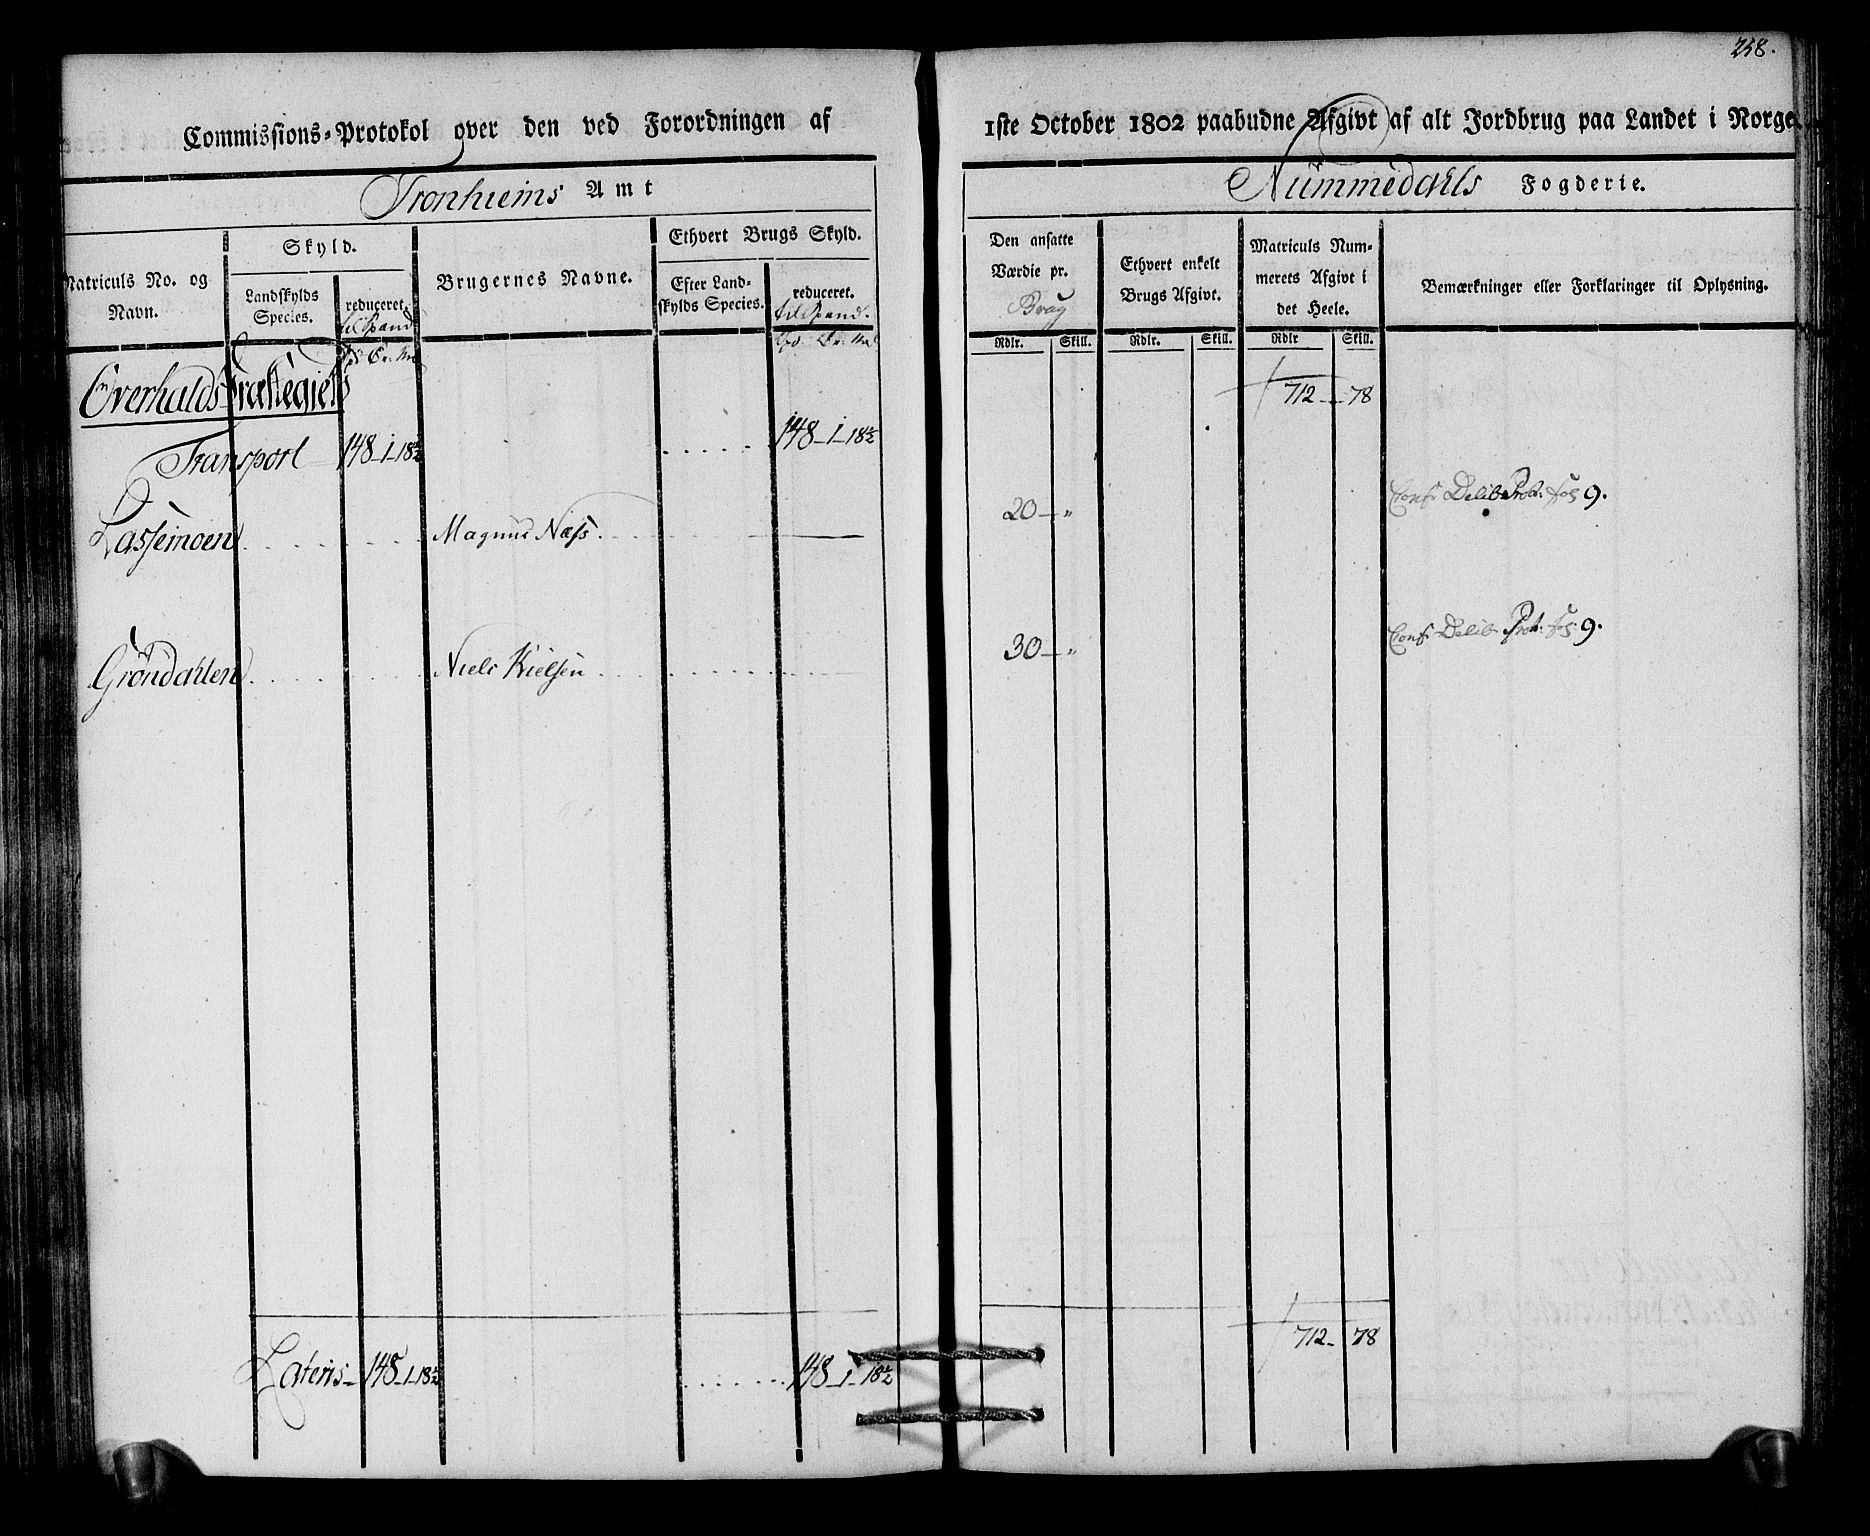 258.
Commissions=Protokol over den ved Forordningen af 1ste October 1802 paabudne Afgivt af alt Jordbrug paa Landet i Norge.
Tronhiems Amt
Nummedahls Fogderie.
Matriculs No. og Navn.
Skyld.
Landskylds Species.
reduceret.
til Spand
Brugernes Navne.
Ethvert Brugs Skyld.
Efter Landskylds Species.
reduceret.
til Spand.
Den ansatte Værdie pr. Brug
Rdlr. Skill.
Ethvert enkelt Brugs Afgivt.
Rdlr. Skill.
Matriculs Nummerets Afgivt i det Heele.
Rdlr Skill.
Bemærkninger eller Forklaringer til Oplysning.
Overhalds Præstegield
712 - 78
Transport 148-1-18½ . . . . . 148-1-18½
Lassemoen . . . . Magnus Næss . . . . 20 - " Conf. Delib. Prot. fol 9.
Gröndahlen . . . . Niels Kielsen . . . . 30 - " Conf. Delib. Prot. fol. 9.
Lateris - 148-1-18½ . . . . . 148-1-18½ 712 - 78